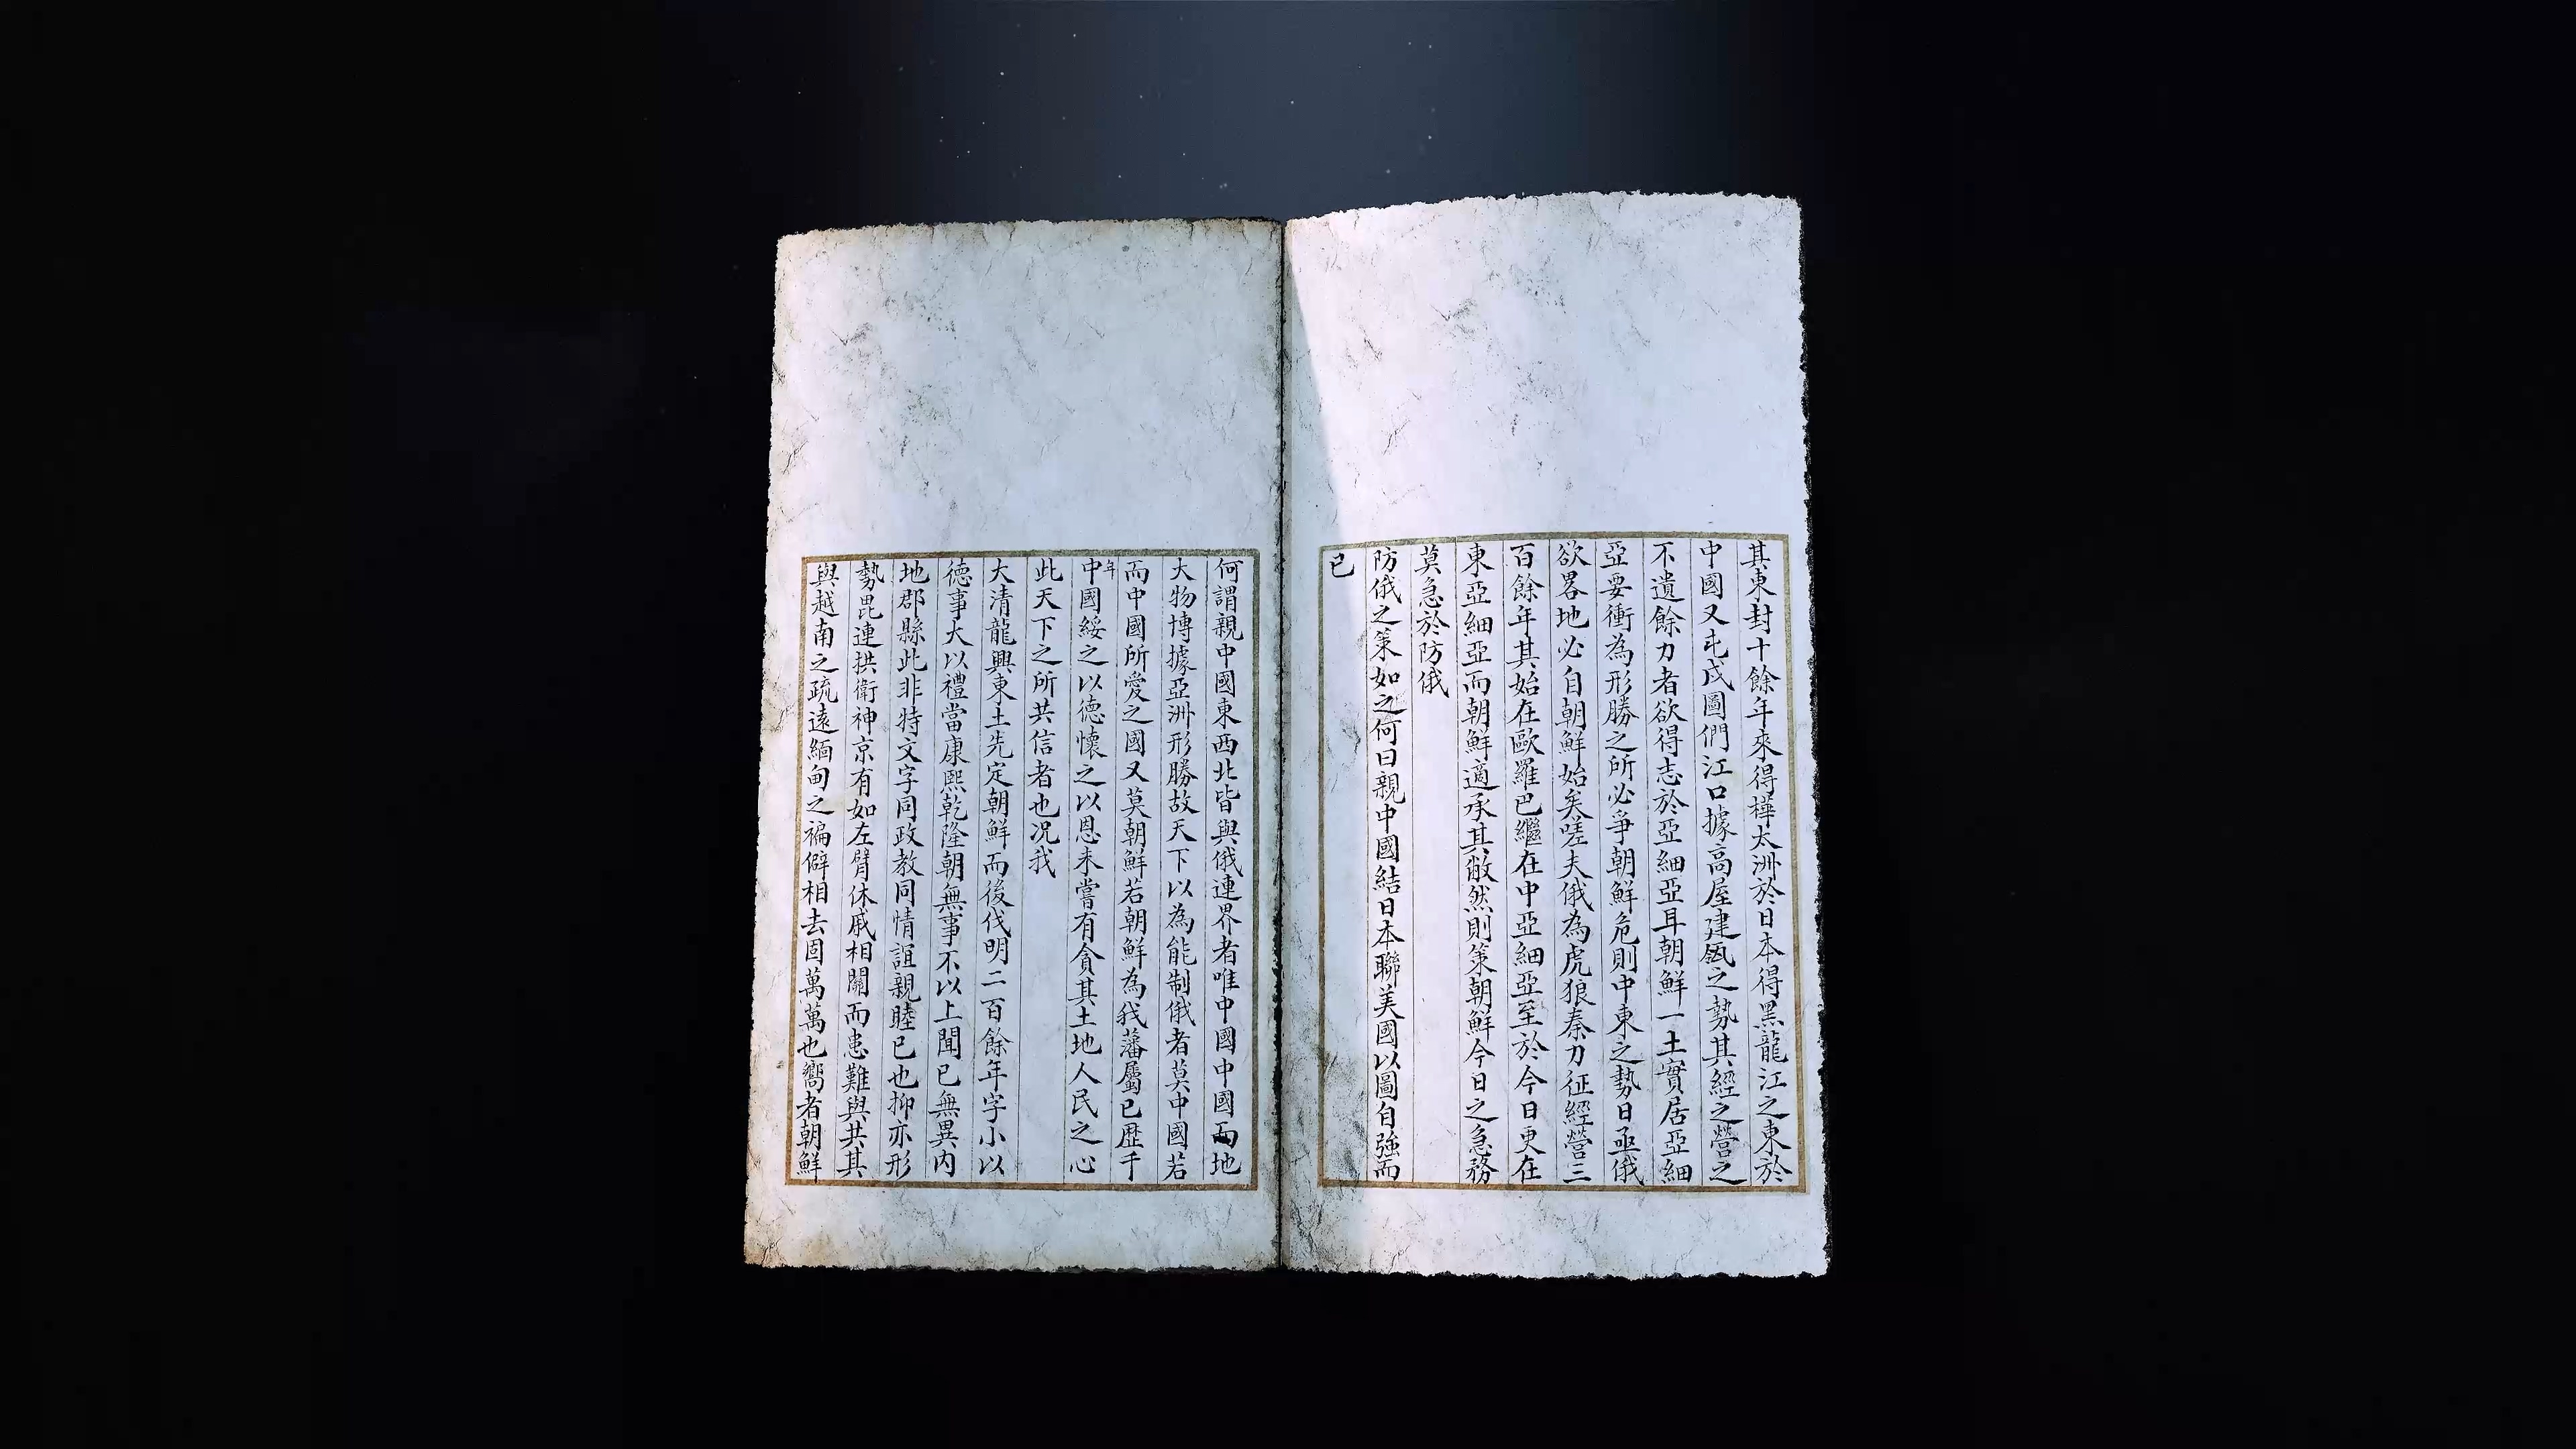 其東封十餘年來得樺太洲於日本得黑龍江之東於
中國又屯戍圖們江口據高屋建瓴之勢其經之營之
不遺餘力者欲得志於亞細亞耳朝鮮一土實居亞細
亞要衝為形勝之所必爭朝鮮危則中東之勢日亟俄
欲畧地必自朝鮮始矣嗟夫俄為虎狼秦力征經營三
百餘年其始在歐羅巴繼在中亞細亞至於今日更在
東亞細亞而朝鮮適承其敝然則策朝鮮今日之急務
莫急於防俄
防俄之策如之何曰親中國結日本聯美國以圖自強而
已
何謂親中國東西北皆與俄連界者唯中國中國而地
大物博據亞洲形勝故天下以為能制俄者莫中國若
而中國所愛之國又莫朝鮮若朝鮮為我藩屬已歷千
年
中國綏之以德懷之以恩未嘗有貪其土地人民之心
此天下之所共信者也况我
大清龍興東土先定朝鮮而後伐明二百餘年字小以
德事大以禮當康熙乾隆朝無事不以上聞已無異內
地郡縣此非特文字同政教同情誼親睦已也抑亦形
勢毘連拱衛神京有如左臂休戚相關而患難與共其
與越南之疏遠緬甸之褊僻相去固萬萬也嚮者朝鮮